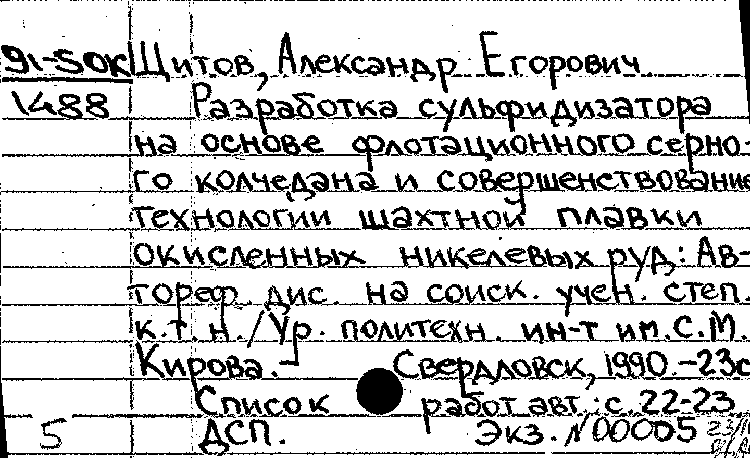 91-50К Щитов, Александр Егорович
1488 Разработка сульфидизатора
на основе флотационного серно-
го колчедана и совершенствование
технологии шахтной плавки
окисленных никелевых руд: Ав-
тореф. дис. на соиск. учен. степ.
к.т.н./Ур. политехн. ин-т им. С.М.
Кирова. - Свердловск, 1990.-23с
Список работ авт.: с. 22-23
5 ДСП. Экз. №00005